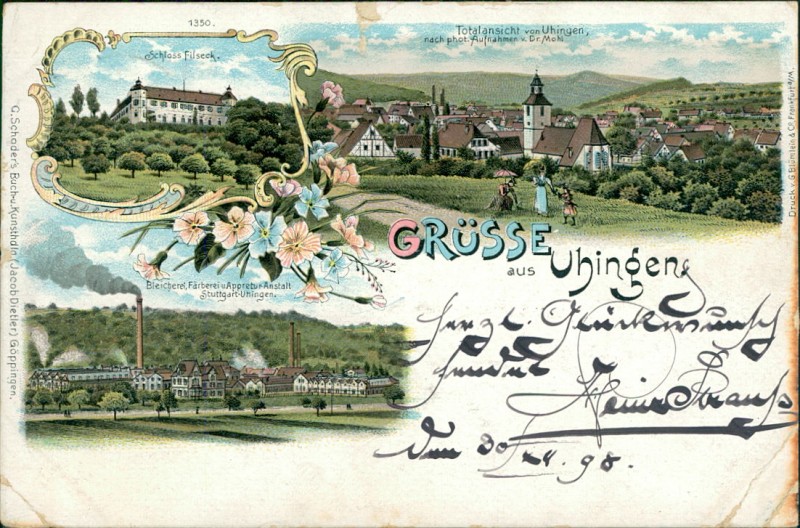 1350.
Schloss Filseck.
Totalansicht von Uhingen,
nach phot. Aufnahmen v. Dr. Mohl
G. Schoder's Buch- u. Kunsthdln. (Jacob Dietler) Göppingen.
Druck v. G. Blümlein & Co. Frankfurt a/M.
GRÜSSE
aus Uhingen
Bleicherei, Färberei u. Appretur-Anstalt
Stuttgart-Uhingen.
Herzl. Glückwunsch
sendet
Strauss
Den 30. 98.